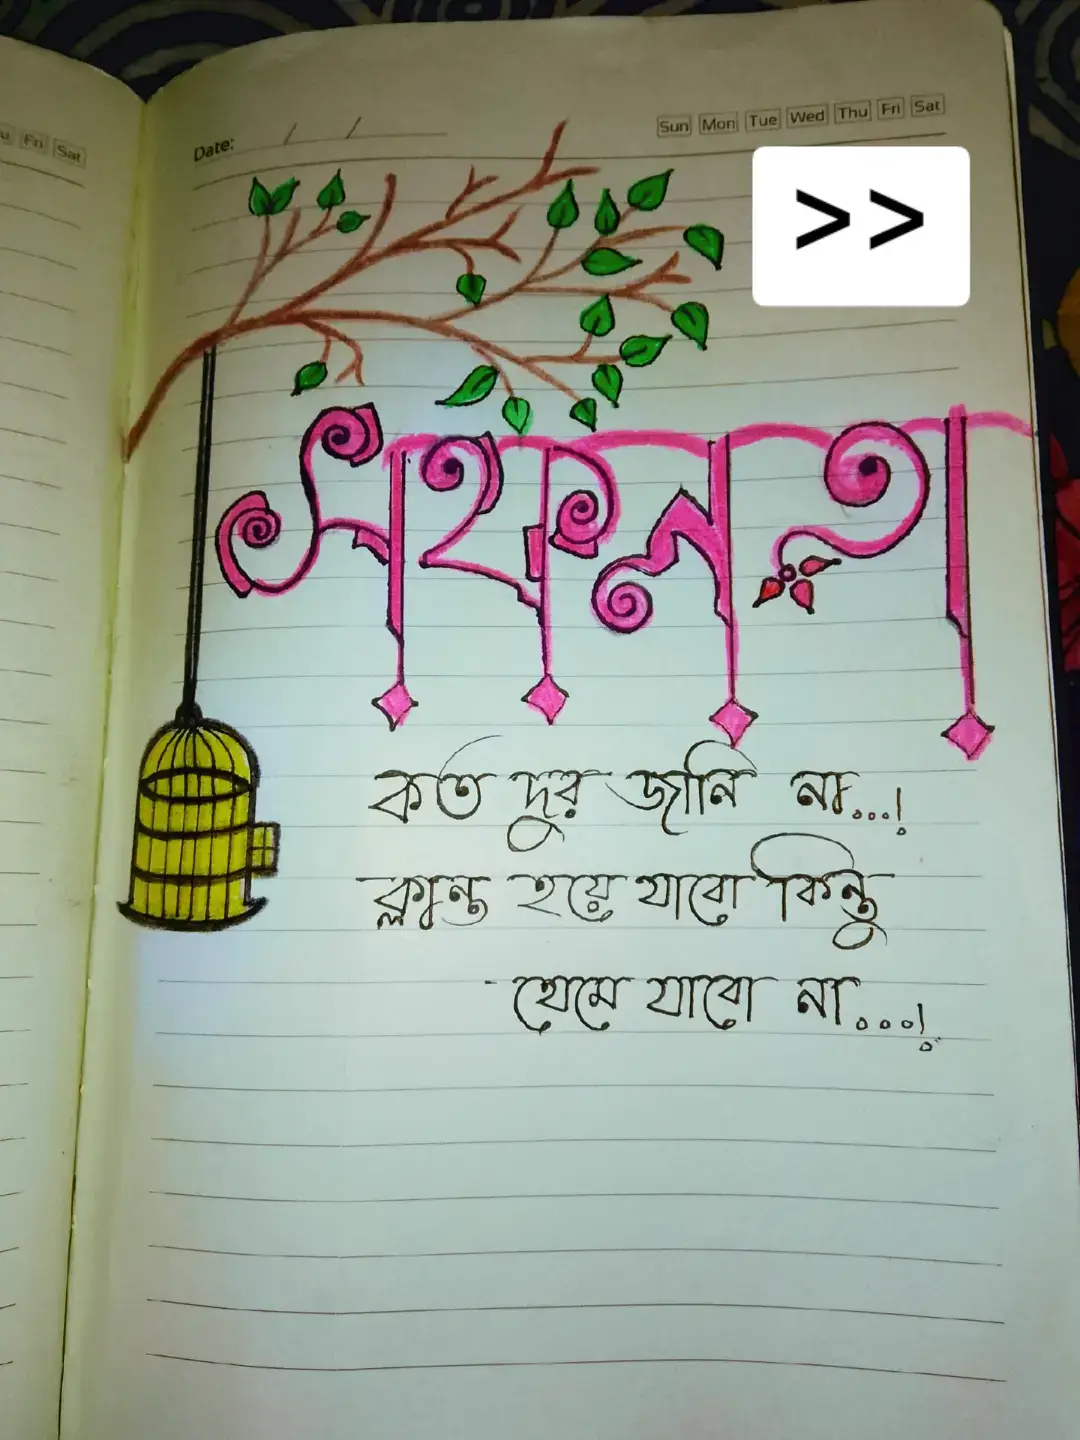 Fri Sat
Date: / /
Sun Mon Tue Wed Thu Fri Sat
>>
সফলতা
কত দুর জানি না...!
ক্লান্ত হয়ে যাবো কিন্তু
থেমে যাবো না...!